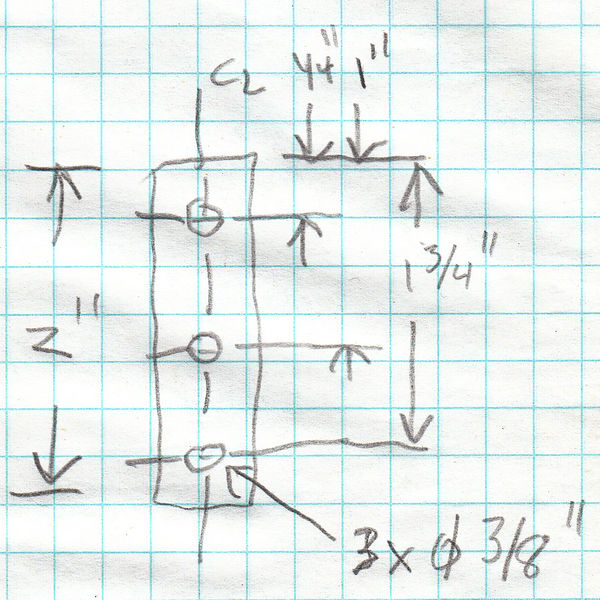 CL 1/4" 1"
1 3/4"
2"
3 x ϕ 3/8"